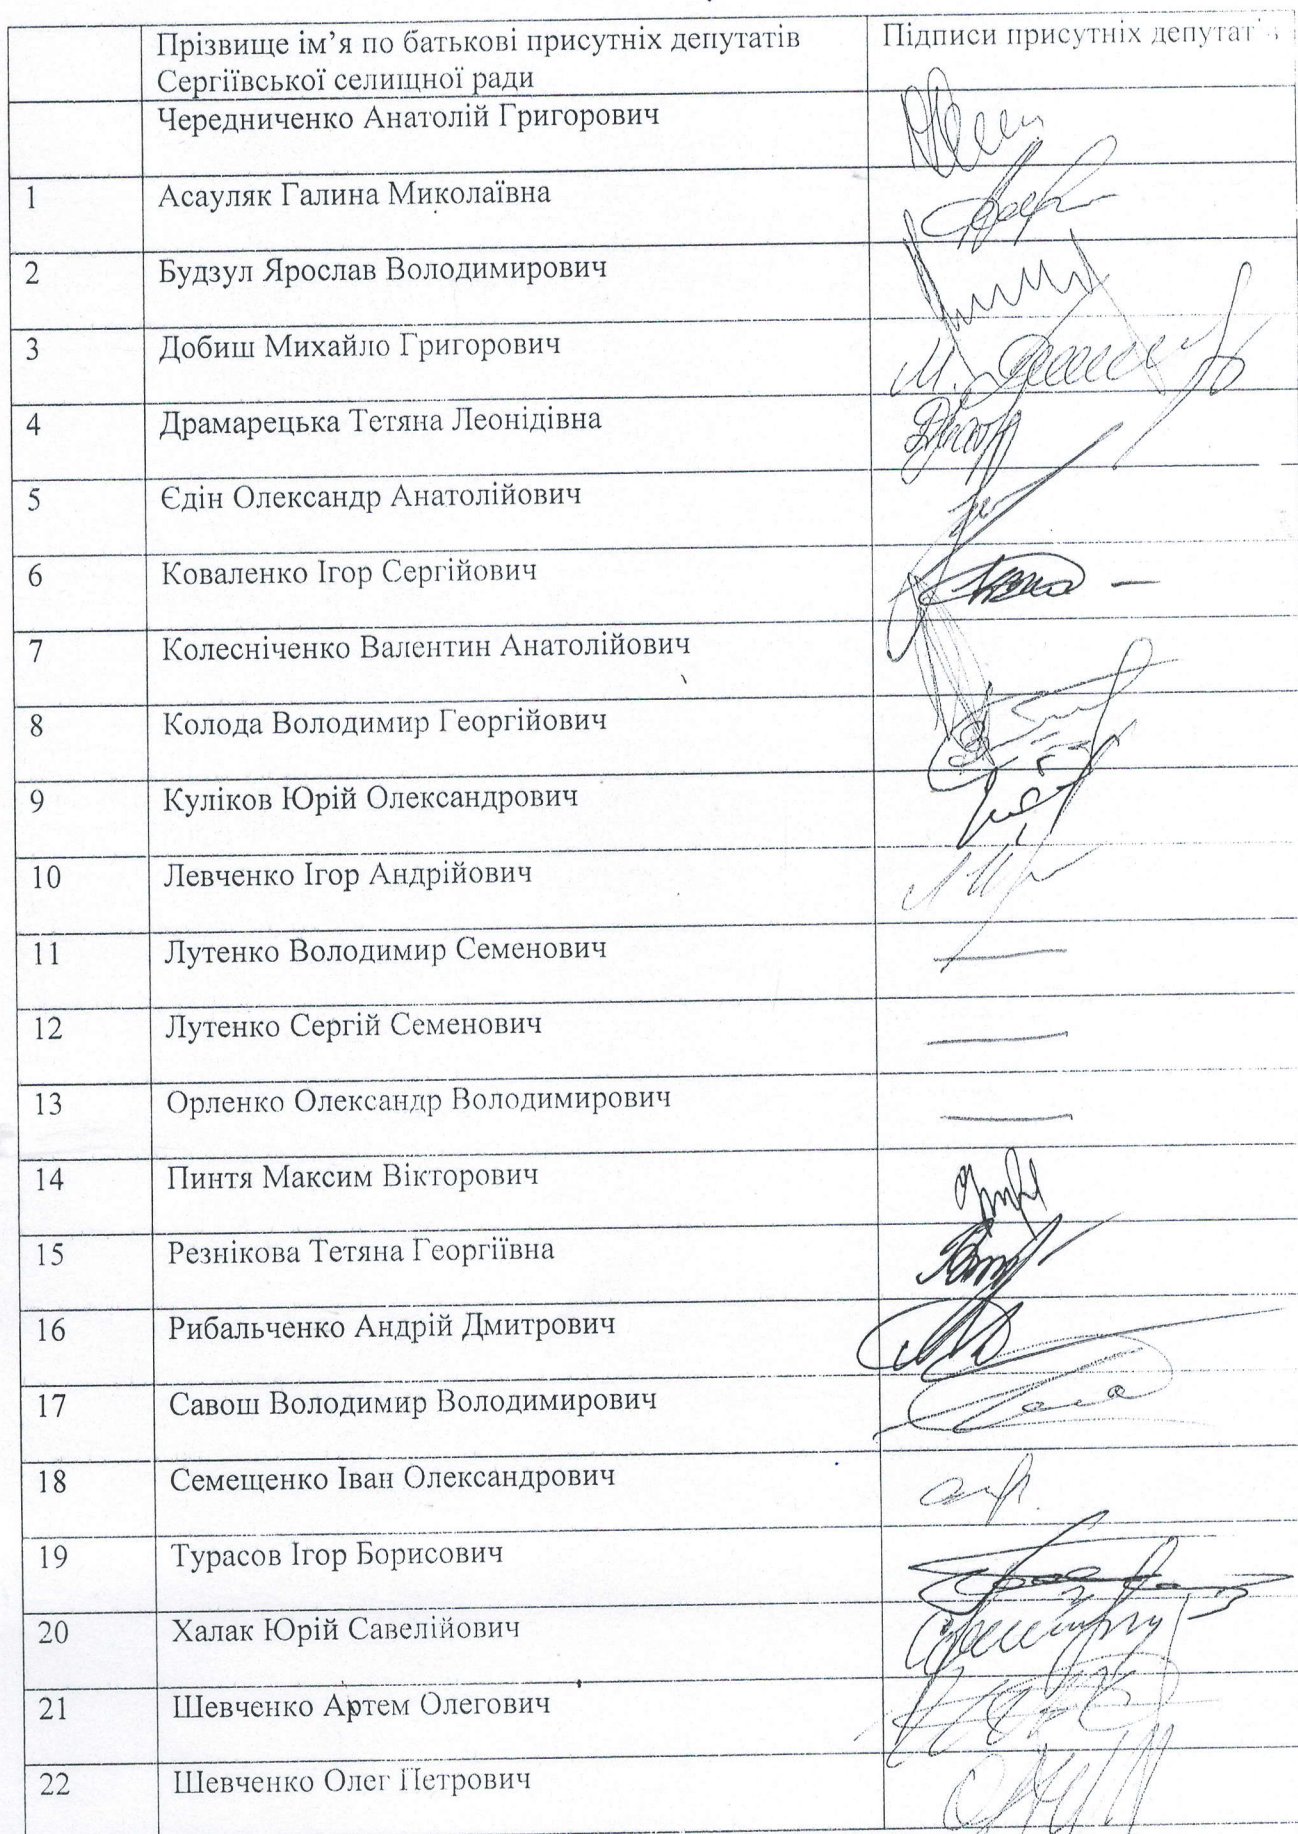 Прізвище ім’я по батькові присутніх депутатів
Сергіївської селищної ради
Підписи присутніх депутатів
Чередниченко Анатолій Григорович
1 Асауляк Галина Миколаївна
2 Будзул Ярослав Володимирович
3 Добиш Михайло Григорович
4 Драмарецька Тетяна Леонідівна
5 Єдін Олександр Анатолійович
6 Коваленко Ігор Сергійович
7 Колесніченко Валентин Анатолійович
8 Колода Володимир Георгійович
9 Куліков Юрій Олександрович
10 Левченко Ігор Андрійович
11 Лутенко Володимир Семенович
12 Лутенко Сергій Семенович
13 Орленко Олександр Володимирович
14 Пинтя Максим Вікторович
15 Резнікова Тетяна Георгіївна
16 Рибальченко Андрій Дмитрович
17 Савош Володимир Володимирович
18 Семещенко Іван Олександрович
19 Турасов Ігор Борисович
20 Халак Юрій Савелійович
21 Шевченко Артем Олегович
22 Шевченко Олег Петрович